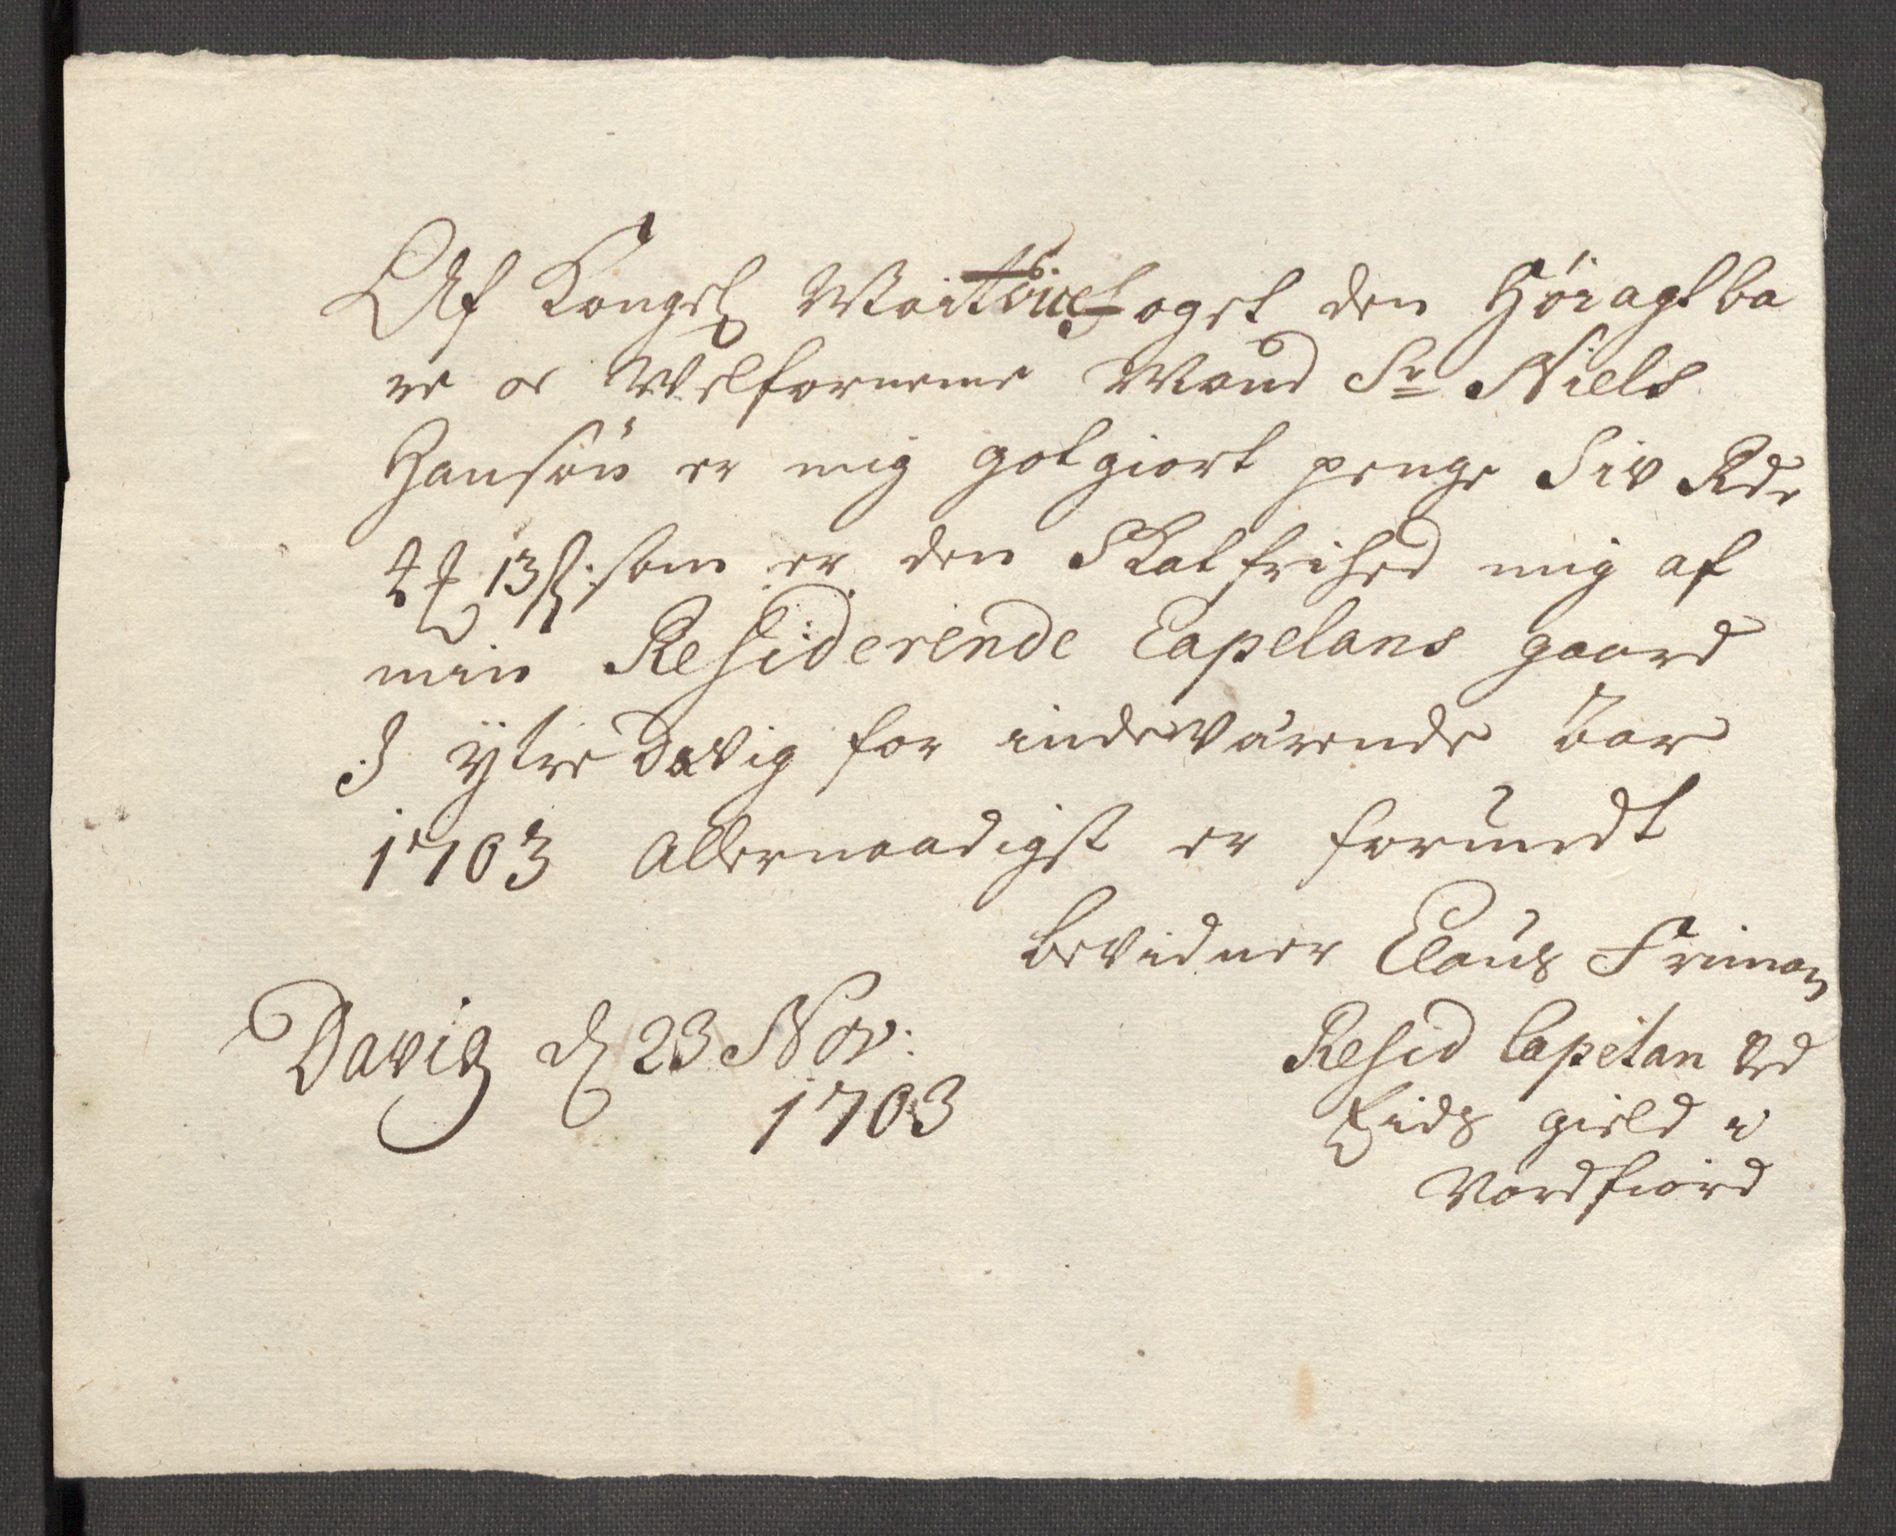 Af Kongel Maitts vice Foget den Høiagtba
re oc Welfornemme Mand Sr Niels
Hansøn er mig gotgiort penge Siv Rdr
4 ₰ 13 ß: som er den Skatfrihed mig af
min Residerende Capelans gaard
I ytre Davig for indeværende Aar
1703 Allernaadigst er forundt
bevidner Claus Friman
Davig d 23 Nov:
1703
Resid Capelan Ved
Eids gield i
Nordfiord